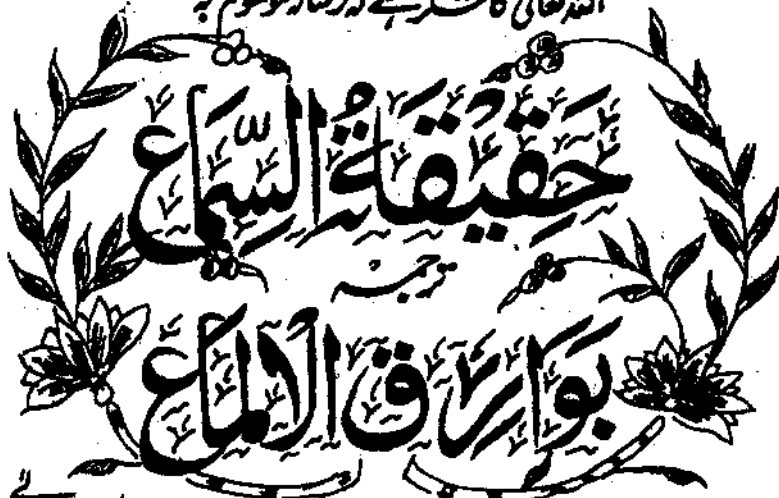 اللہ تعالیٰ کا شکر ہے کہ رسالہ موسوم بہ
حَقِیْقَۃُ السِّمَاع
ترجمہ
بَوَارِقُ الْاِلْمَاع